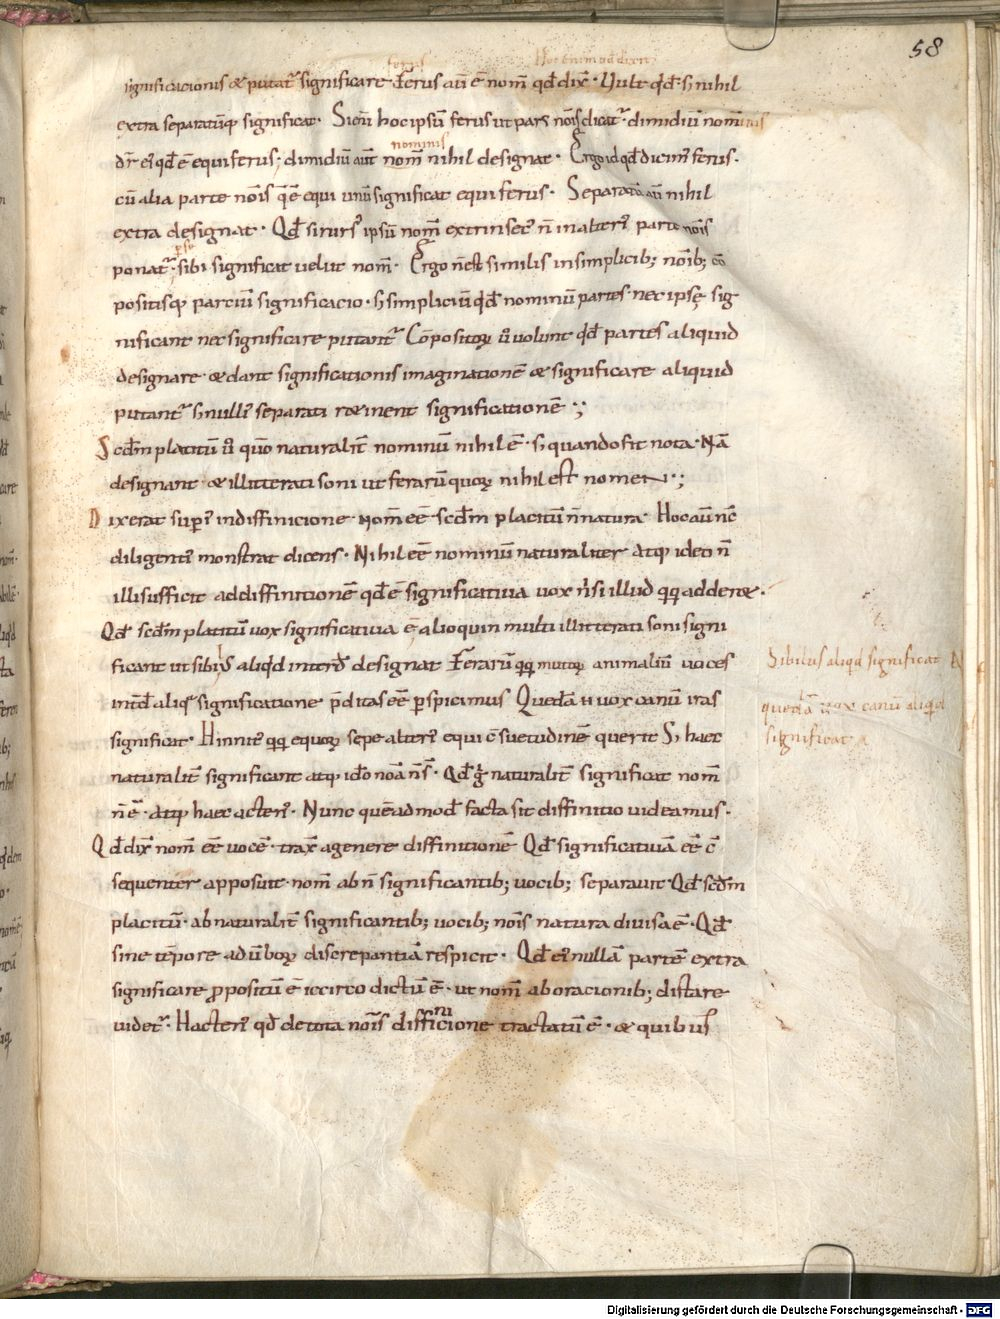 58
significacionis & putat᷑ significare Ferus aut̄ ē nom̄ qd̄ dix̄· Uult qđ s; nihil
extra separatūq; significat· Sicut hoc ipsū ferus ut pars nōis dicat᷑· dimidiū nominis
dr̄ ei qđ ē equiferus; dimidiū aut̄ nom̄ nihil designat· Ergo id qđ dicim᷒ ferus·
nominis
cū alia parte nōis q̄ ē equi unū significat equiferus· Separatū aut̄ nihil
extra designat· Qđ si rurs᷒ ipsū nom̄ extrinsec᷒ n̄ in alteri᷒ parte nōis
ponat᷑· sibi significat uelut nom̄· Ergo n̄ est similis in simplicib; nōib; cō
per se
positisq; parciū significacio· s; simpliciū qđ nominū partes· nec ipsę sig
nificant nec significare putant᷑ Cōpositorꝝ ū uolunt qđ partes aliquid
designare· & dant significationis imaginationē & significare aliquid
putant᷑ s; nulli᷒ separati r&inent significationē·;·
Scdm̄ platitū ū quō naturalit̄ nominū nihil ē· s; quando fit nota· Nā
designant· & illitterati soni ut ferarū quorꝝ nihil est nomen·;
Dixerat supi᷒ in diffinicione nom̄ eē scdm̄ placitū n̄ natura· Hoc aut̄ nc̄
diligenti᷒ monstrat dicens· Nihil eē nominū naturaliter Atq; ideo n̄
illi sufficit ad diffinitionē qđ ē significatiua uox n̄si illud qq; adder&·
Qđ scdm̄ platitū uox significatiua ē alioquin multi illitterati soni signi
ficant ut sibilus aliqđ interd̄ designat Ferarū qq; mutorꝝ animaliū uoces
Sibilus aliqd significat
int̄d̄ aliq᷒ significatione p̄ditas eē perspicimus Quedā n̄ uox canū iras
quedā uox canū aliqd
significat· Hinnit᷒ qq; equorꝝ sepe alteri᷒ equi c̄suetudinē querit S; haec
significat
naturalit̄ significant atq; ido nōa n̄ s̄· Qđ g̊ naturalit̄ significat nom̄
n̄ ē· Atq; haec acteri᷒· Nunc quēadmođ facta sit diffinitio uideamus·
Qđ dix̄ nom̄ eē uocē· trax̄ a genere diffinitionē Qđ significatiuā eē c̄
sequenter apposuit· nom̄ ab n̄ significantib; uocib; separauit· Qđ scdm̄
placitū· ab naturalit̄ significantib; uocib; nōis natura diuisa ē· Qđ
sine tēpore ad ūborꝝ discrepantiā respicit· Qđ ei᷒ nullā partē extra
significare ꝓpositū ē iccirco dictū ē· ut nom̄ ab oracionib; distare
uidet᷑· Hacteni᷒ qđ de tota nōis diffinicione tractatū ē· & quibus
Digitalisierung gefördert durch die Deutsche Forschungsgemeinschaft - DFG